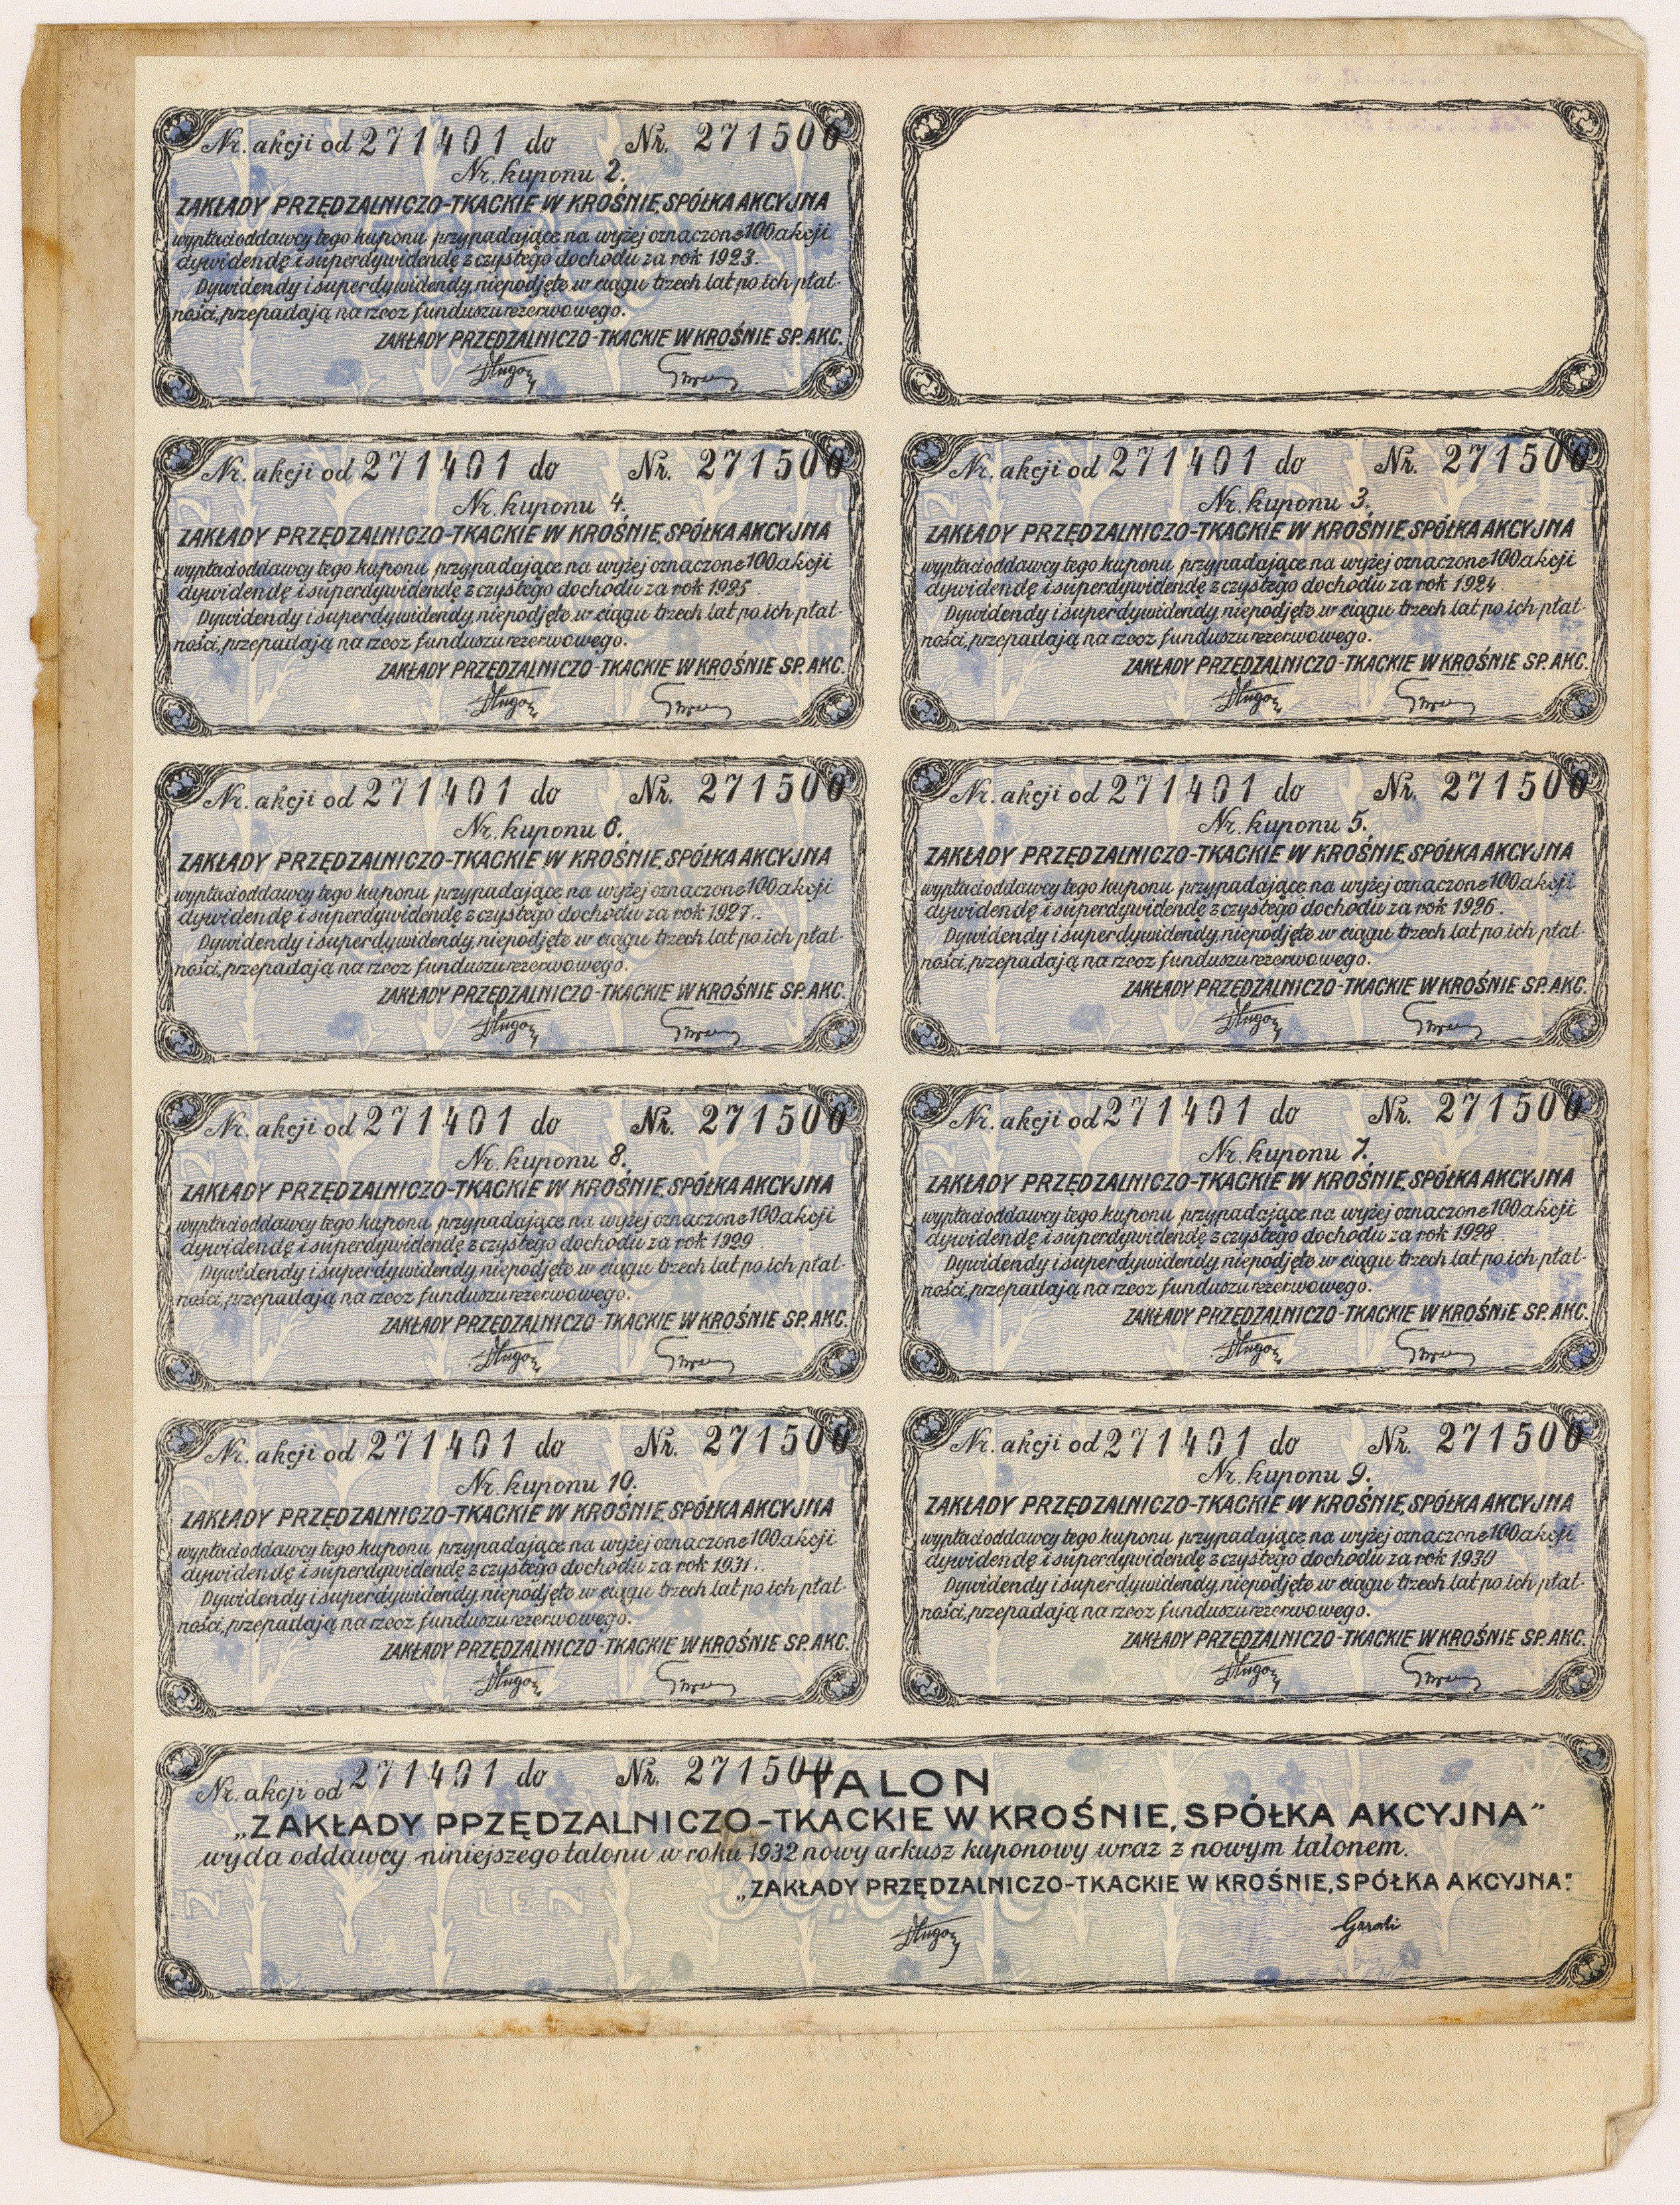 Nr. akcji od 271401 do Nr. 271500
Nr. kuponu 2.
ZAKŁADY PRZĘDZALNICZO-TKACKIE W KROŚNIE, SPÓŁKA AKCYJNA
wypłaci oddawcy tego kuponu przypadające na wyżej oznaczone 100 akcji
dywidendę i superdywidendę z czystego dochodu za rok 1923.
Dywidendy i superdywidendy, niepodjęte w ciągu trzech lat po ich płat-
ności, przepadają na rzecz funduszu rezerwowego.
ZAKŁADY PRZĘDZALNICZO-TKACKIE W KROŚNIE SP. AKC.
Nr. akcji od 271401 do Nr. 271500
Nr. kuponu 4.
ZAKŁADY PRZĘDZALNICZO-TKACKIE W KROŚNIE, SPÓŁKA AKCYJNA
wypłaci oddawcy tego kuponu przypadające na wyżej oznaczone 100 akcji
dywidendę i superdywidendę z czystego dochodu za rok 1925.
Dywidendy i superdywidendy, niepodjęte w ciągu trzech lat po ich płat-
ności, przepadają na rzecz funduszu rezerwowego.
ZAKŁADY PRZĘDZALNICZO-TKACKIE W KROŚNIE SP. AKC.
Nr. akcji od 271401 do Nr. 271500
Nr. kuponu 3.
ZAKŁADY PRZĘDZALNICZO-TKACKIE W KROŚNIE, SPÓŁKA AKCYJNA
wypłaci oddawcy tego kuponu przypadające na wyżej oznaczone 100 akcji
dywidendę i superdywidendę z czystego dochodu za rok 1924.
Dywidendy i superdywidendy, niepodjęte w ciągu trzech lat po ich płat-
ności, przepadają na rzecz funduszu rezerwowego.
ZAKŁADY PRZĘDZALNICZO-TKACKIE W KROŚNIE SP. AKC.
Nr. akcji od 271401 do Nr. 271500
Nr. kuponu 6.
ZAKŁADY PRZĘDZALNICZO-TKACKIE W KROŚNIE, SPÓŁKA AKCYJNA
wypłaci oddawcy tego kuponu przypadające na wyżej oznaczone 100 akcji
dywidendę i superdywidendę z czystego dochodu za rok 1927.
Dywidendy i superdywidendy, niepodjęte w ciągu trzech lat po ich płat-
ności, przepadają na rzecz funduszu rezerwowego.
ZAKŁADY PRZĘDZALNICZO-TKACKIE W KROŚNIE SP. AKC.
Nr. akcji od 271401 do Nr. 271500
Nr. kuponu 5.
ZAKŁADY PRZĘDZALNICZO-TKACKIE W KROŚNIE, SPÓŁKA AKCYJNA
wypłaci oddawcy tego kuponu przypadające na wyżej oznaczone 100 akcji
dywidendę i superdywidendę z czystego dochodu za rok 1926.
Dywidendy i superdywidendy, niepodjęte w ciągu trzech lat po ich płat-
ności, przepadają na rzecz funduszu rezerwowego.
ZAKŁADY PRZĘDZALNICZO-TKACKIE W KROŚNIE SP. AKC.
Nr. akcji od 271401 do Nr. 271500
Nr. kuponu 8.
ZAKŁADY PRZĘDZALNICZO-TKACKIE W KROŚNIE, SPÓŁKA AKCYJNA
wypłaci oddawcy tego kuponu przypadające na wyżej oznaczone 100 akcji
dywidendę i superdywidendę z czystego dochodu za rok 1929.
Dywidendy i superdywidendy, niepodjęte w ciągu trzech lat po ich płat-
ności, przepadają na rzecz funduszu rezerwowego.
ZAKŁADY PRZĘDZALNICZO-TKACKIE W KROŚNIE SP. AKC.
Nr. akcji od 271401 do Nr. 271500
Nr. kuponu 7.
ZAKŁADY PRZĘDZALNICZO-TKACKIE W KROŚNIE, SPÓŁKA AKCYJNA
wypłaci oddawcy tego kuponu przypadające na wyżej oznaczone 100 akcji
dywidendę i superdywidendę z czystego dochodu za rok 1928.
Dywidendy i superdywidendy, niepodjęte w ciągu trzech lat po ich płat-
ności, przepadają na rzecz funduszu rezerwowego.
ZAKŁADY PRZĘDZALNICZO-TKACKIE W KROŚNIE SP. AKC.
Nr. akcji od 271401 do Nr. 271500
Nr. kuponu 10.
ZAKŁADY PRZĘDZALNICZO-TKACKIE W KROŚNIE, SPÓŁKA AKCYJNA
wypłaci oddawcy tego kuponu przypadające na wyżej oznaczone 100 akcji
dywidendę i superdywidendę z czystego dochodu za rok 1931.
Dywidendy i superdywidendy, niepodjęte w ciągu trzech lat po ich płat-
ności, przepadają na rzecz funduszu rezerwowego.
ZAKŁADY PRZĘDZALNICZO-TKACKIE W KROŚNIE SP. AKC.
Nr. akcji od 271401 do Nr. 271500
Nr. kuponu 9.
ZAKŁADY PRZĘDZALNICZO-TKACKIE W KROŚNIE, SPÓŁKA AKCYJNA
wypłaci oddawcy tego kuponu przypadające na wyżej oznaczone 100 akcji
dywidendę i superdywidendę z czystego dochodu za rok 1930
Dywidendy i superdywidendy, niepodjęte w ciągu trzech lat po ich płat-
ności, przepadają na rzecz funduszu rezerwowego.
ZAKŁADY PRZĘDZALNICZO-TKACKIE W KROŚNIE SP. AKC.
Nr. akcji od 271401 do Nr. 271500
TALON
„ZAKŁADY PPZĘDZALNICZO-TKACKIE W KROŚNIE, SPÓŁKA AKCYJNA"
wyda oddawcy niniejszego talonu w roku 1932 nowy arkusz kuponowy wraz z nowym talonem.
„ZAKŁADY PRZĘDZALNICZO-TKACKIE W KROŚNIE, SPÓŁKA AKCYJNA."
LEN
50.000